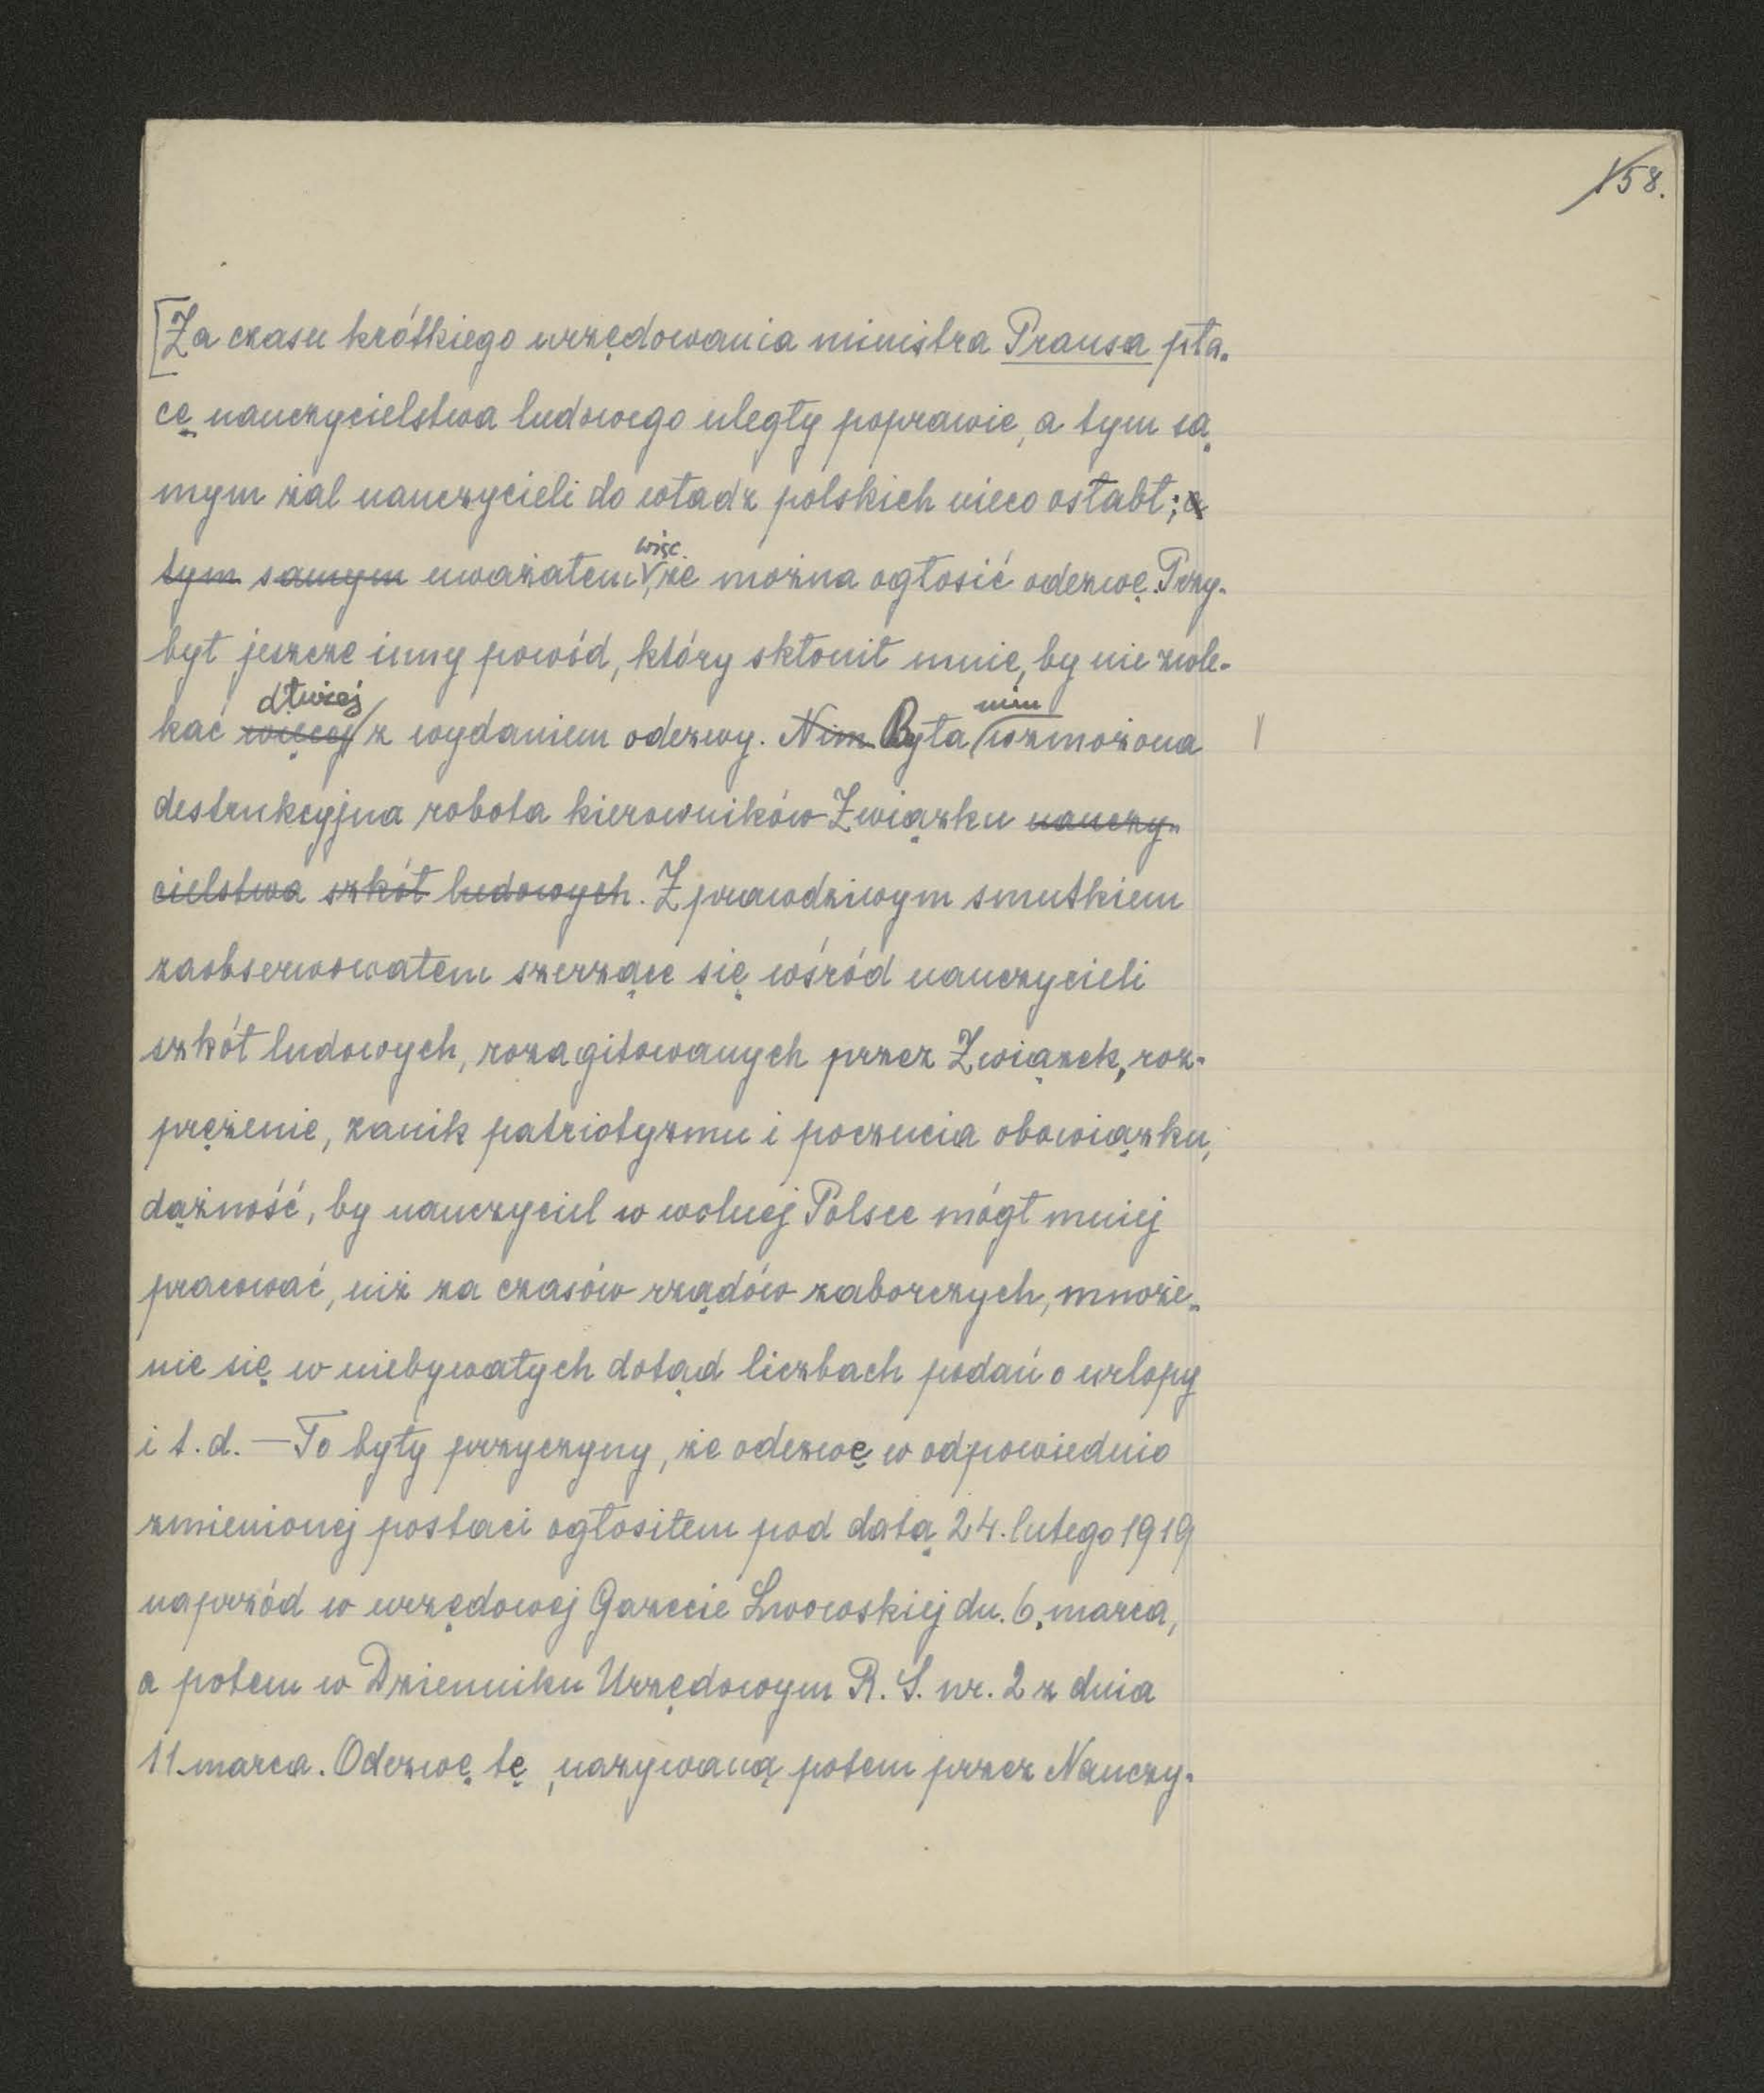 158.
[Za czasu krótkiego urzędowania ministra Prausa pła-
cę nauczycielstwa ludowego uległy poprawie, a tym sa-
mym żal nauczycieli do władz polskich nieco osłabł; a
tym samym uważałem więc, że można ogłosić odezwę. Przy-
był jeszcze inny powód, który skłonił mnie, by nie zwle-
kać więcej dłużej z wydaniem odezwy. Nim Była nim wzmożona
destrukcyjna robota kierowników Związku nauczy-
cielstwa szkół ludowych. Z prawdziwym smutkiem
zaobserwowałem szerzące się wśród nauczycieli
szkół ludowych, rozagitowanych przez Związek, roz-
prężenie, zanik patriotyzmu i poczucia obowiązku,
dążność, by nauczyciel w wolnej Polsce mógł mniej
pracować, niż za czasów rządów zaborczych, mnoże-
nie się w niebywałych dotąd liczbach podań o urlopy
i t. d. — To były przyczyny, że odezwę w odpowiednio
zmienionej postaci ogłosiłem pod datą 24. lutego 1919
naprzód w urzędowej Gazecie Lwowskiej dn. 6. marca,
a potem w Dzienniku Urzędowym R. S. nr. 2 z dnia
11 marca. Odezwę tę, nazywaną potem przez Nauczy-